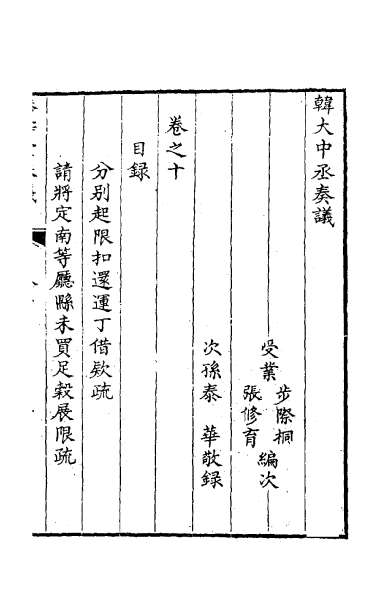 韓大中丞奏議
受業
步際桐
張修育
編次
次孫泰華敬錄
卷之十
目錄
分别起限扣還運丁借欵疏
請將定南等廳縣未買足穀展限疏